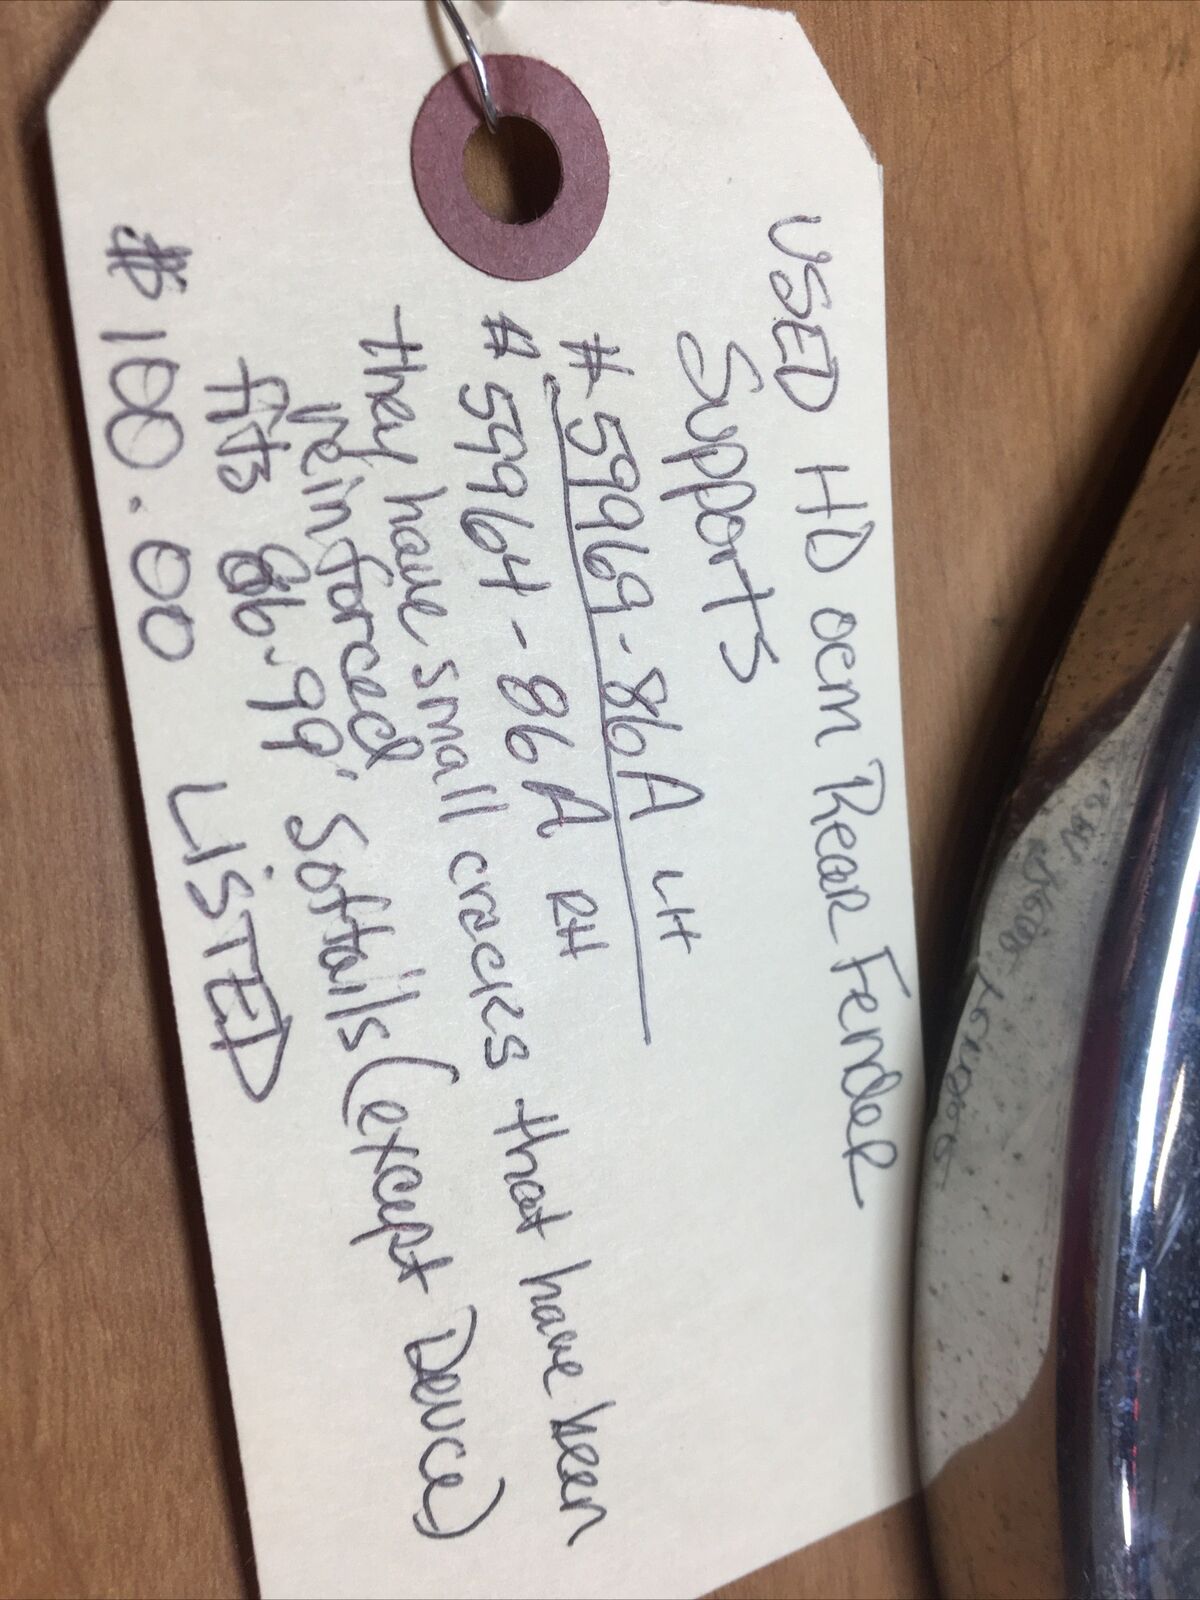 USED HD oem Rear Fender
Supports
# 59969-86A LH
# 59964-86A RH
they have small cracks that have been
reinforced
fits 86-99' Softails (except Deuce)
$100.00 LISTED